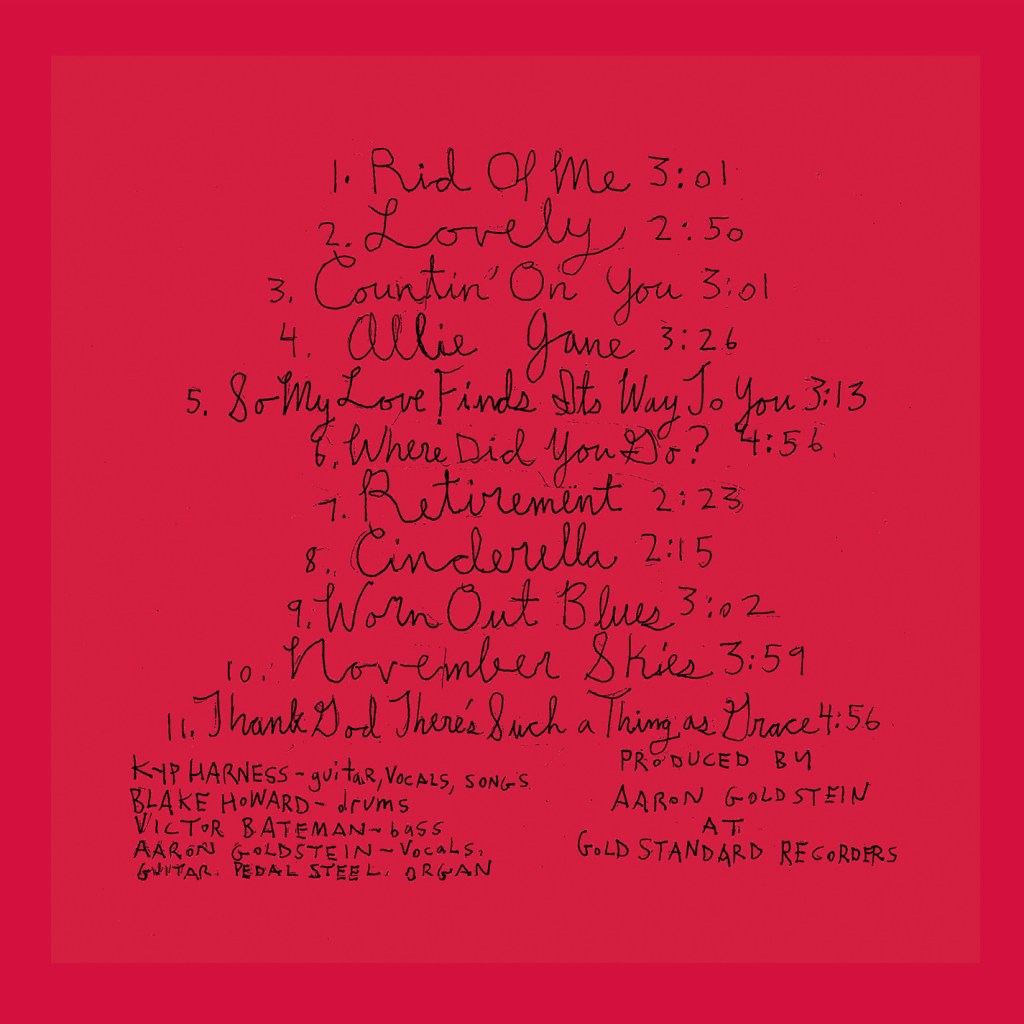 1. Rid Of Me 3:01
2. Lovely 2:50
3. Countin' On You 3:01
4. Allie Jane 3:26
5. So My Love Finds Its Way To You 3:13
6. Where Did You Go? 4:56
7. Retirement 2:23
8. Cinderella 2:15
9. Worn Out Blues 3:02
10. November Skies 3:59
11. Thank God There's Such a Thing as Grace 4:56
KYP HARNESS - guitar, VOCALS, SONGS
BLAKE HOWARD - drums
VICTOR BATEMAN - bass
AARON GOLDSTEIN - VOCALS,
GUITAR, PEDAL STEEL, ORGAN
PRODUCED BY
AARON GOLDSTEIN
AT
GOLD STANDARD RECORDERS